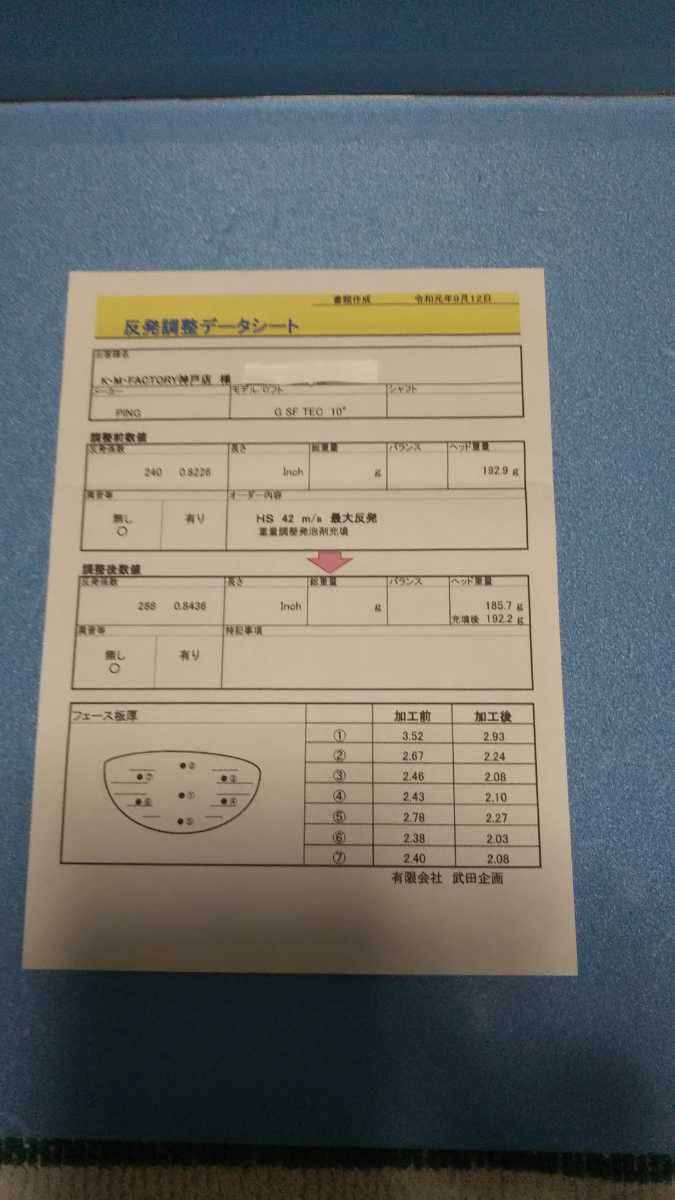 書類作成 令和元年9月12日
反発調整データシート
お客様名
K・M・FACTORY神戸店 様
メーカー モデル/ロフト シャフト
PING G SF TEC 10°
調整前数値
反発係数 長さ 総重量 バランス ヘッド重量
240 0.8226 Inch g 192.9 g
異音等 オーダー内容
無し 有り HS 42 m/s 最大反発
○ 重量調整発泡剤充填
調整後数値
反発係数 長さ 総重量 バランス ヘッド重量
288 0.8436 Inch g 185.7 g
充填後 192.2 g
異音等 特記事項
無し 有り
○
フェース板厚 加工前 加工後
① 3.52 2.93
② 2.67 2.24
③ 2.46 2.08
④ 2.43 2.10
⑤ 2.78 2.27
⑥ 2.38 2.03
⑦ 2.40 2.08
②
⑦ ③
①
⑥ ④
⑤
有限会社 武田企画